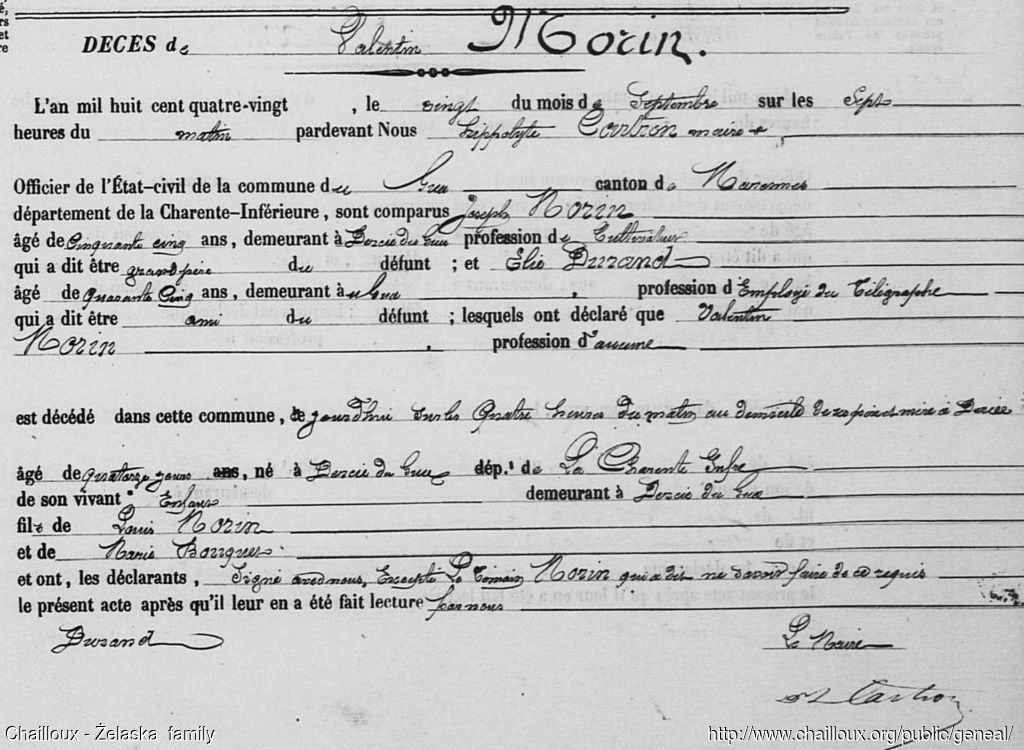 DECÈS de Valentin Morin.
L'an mil huit cent quatre-vingt , le vingt du mois de Septembre sur les Sept
heures du matin pardevant Nous hippolyte maire
Officier de l'État-civil de la commune du Gua canton de Marennes
département de la Charente-Inférieure , sont comparus Joseph Morin
âgé de Cinquante cinq ans , demeurant à Dercie du Gua profession de Cultivateur
qui a dit être grand père du défunt ; et Elie Durand
âgé de quarante Cinq ans , demeurant à Gua , profession d'Employé du Télégraphe
qui a dit être ami du défunt ; lesquels ont déclaré que Valentin
Morin , profession d'aucune
est décédé dans cette commune , ce jourd'hui sur les Quatre heures du matin au domicile de ses père et mère à Dercie
âgé de quatorze jours ans, né à Dercie du Gua dép.t de La Charente Infre
de son vivant Enfant demeurant à Dercie du Gua
fils de Louis Morin
et de Marie
et ont , les déclarants , Signé avec nous, Excepté Le Morin qui a dit ne savoir faire de ce requis
le présent acte après qu'il leur en a été fait lecture par nous
Durand Le Maire
Chailloux - Żelaska family http://www.chailloux.org/public/geneal/